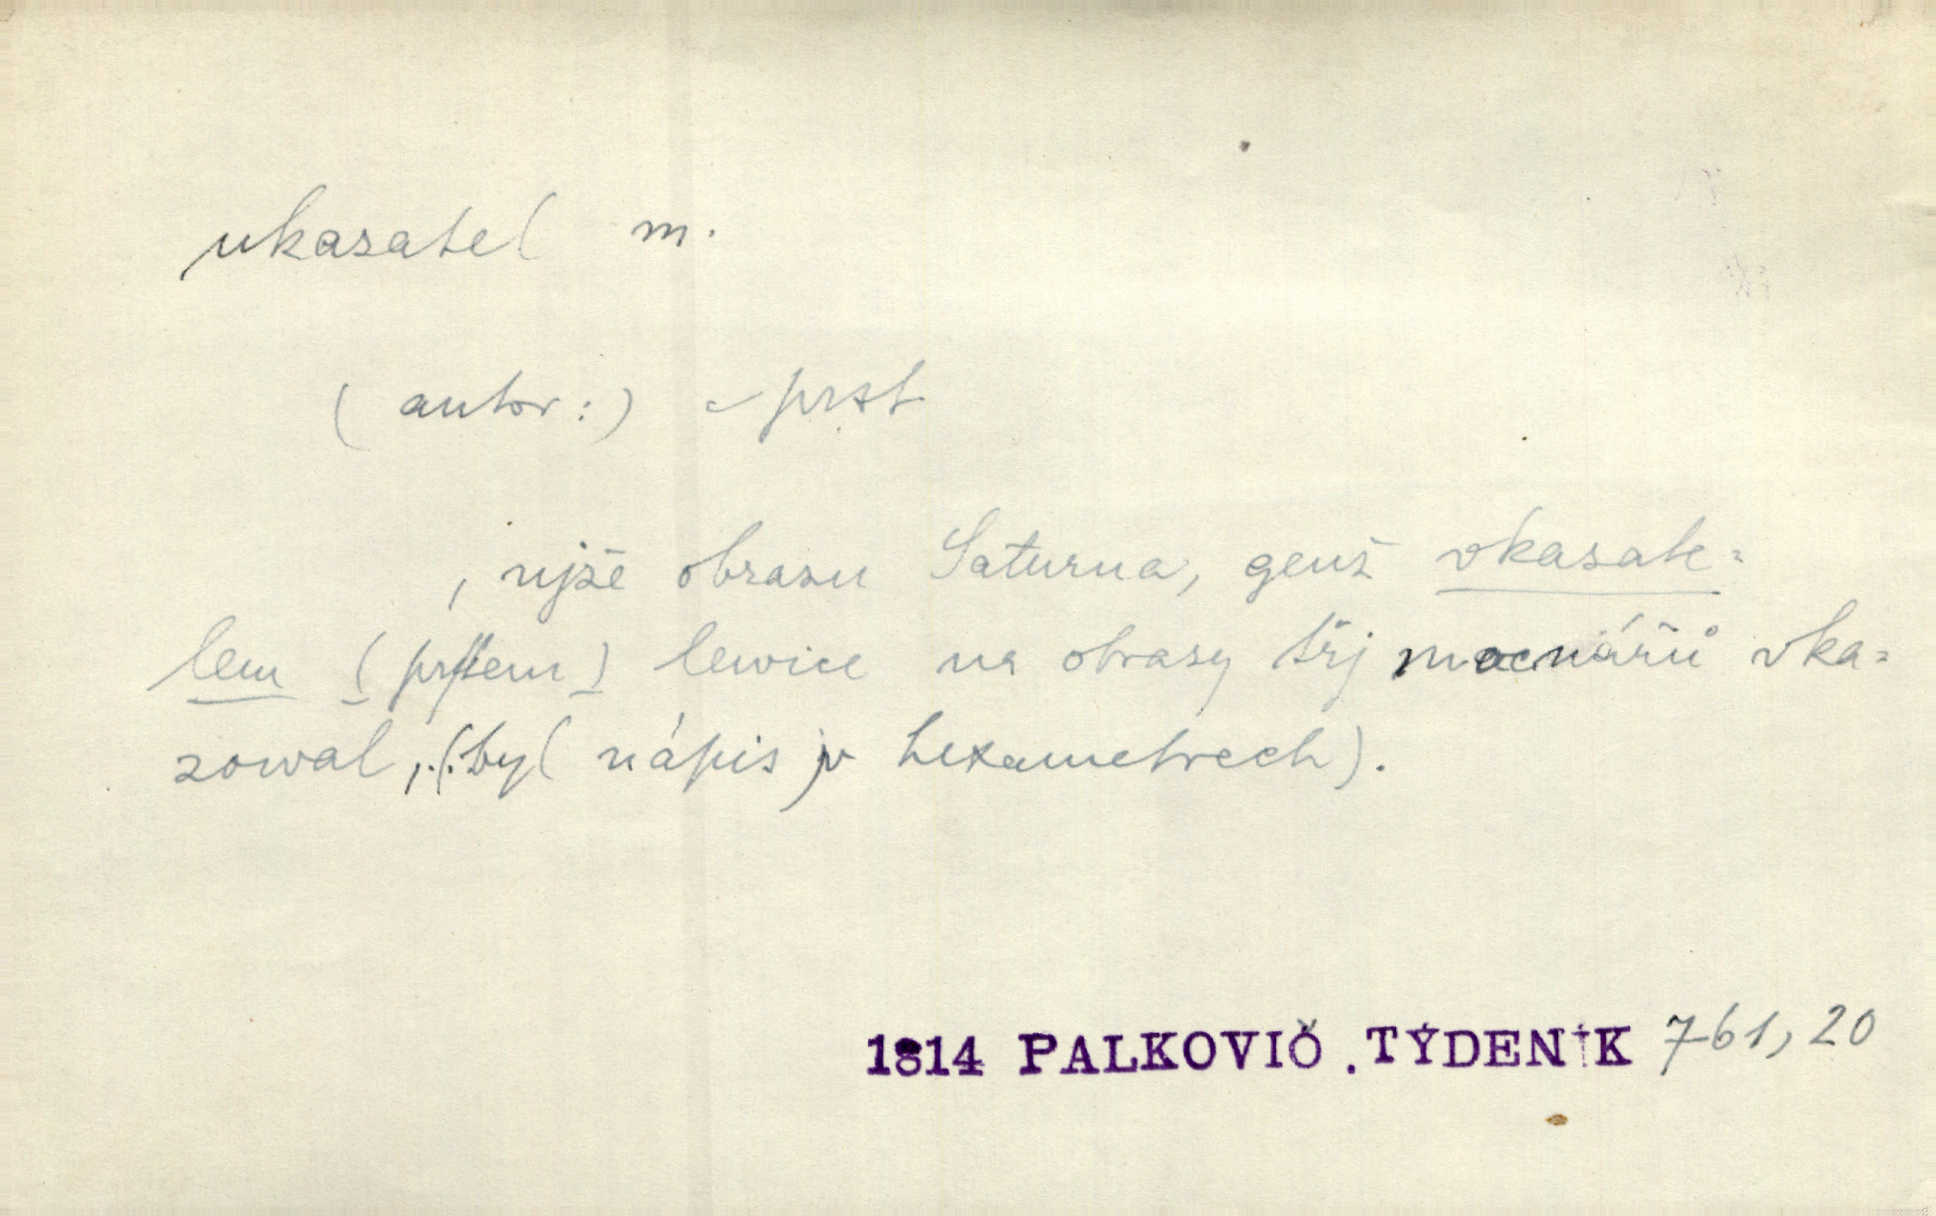 ukazatel m.
(autor:) – prst
, njže obrazu Saturna, genž vkazate=
lem (prstem) lewice na obrazy třj mocnářů vka=
zowal, (byl nápis w hexametrech).
1814 PALKOVIČ. TÝDENÍK 761, 20